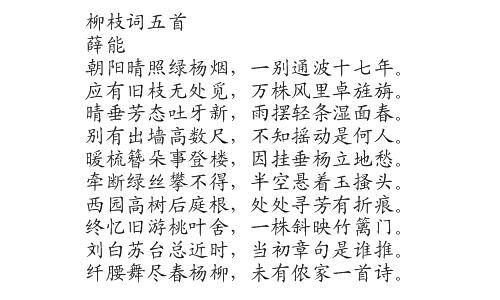 柳枝词五首
薛能
朝阳晴照绿杨烟，一别通波十七年。
应有旧枝无处觅，万株风里卓旌旃。
晴垂芳态吐牙新，雨摆轻条湿面春。
别有出墙高数尺，不知摇动是何人。
暖梳簪朵事登楼，因挂垂杨立地愁。
牵断绿丝攀不得，半空悬着玉搔头。
西园高树后庭根，处处寻芳有折痕。
终忆旧游桃叶舍，一株斜映竹篱门。
刘白苏台总近时，当初章句是谁推。
纤腰舞尽春杨柳，未有侬家一首诗。